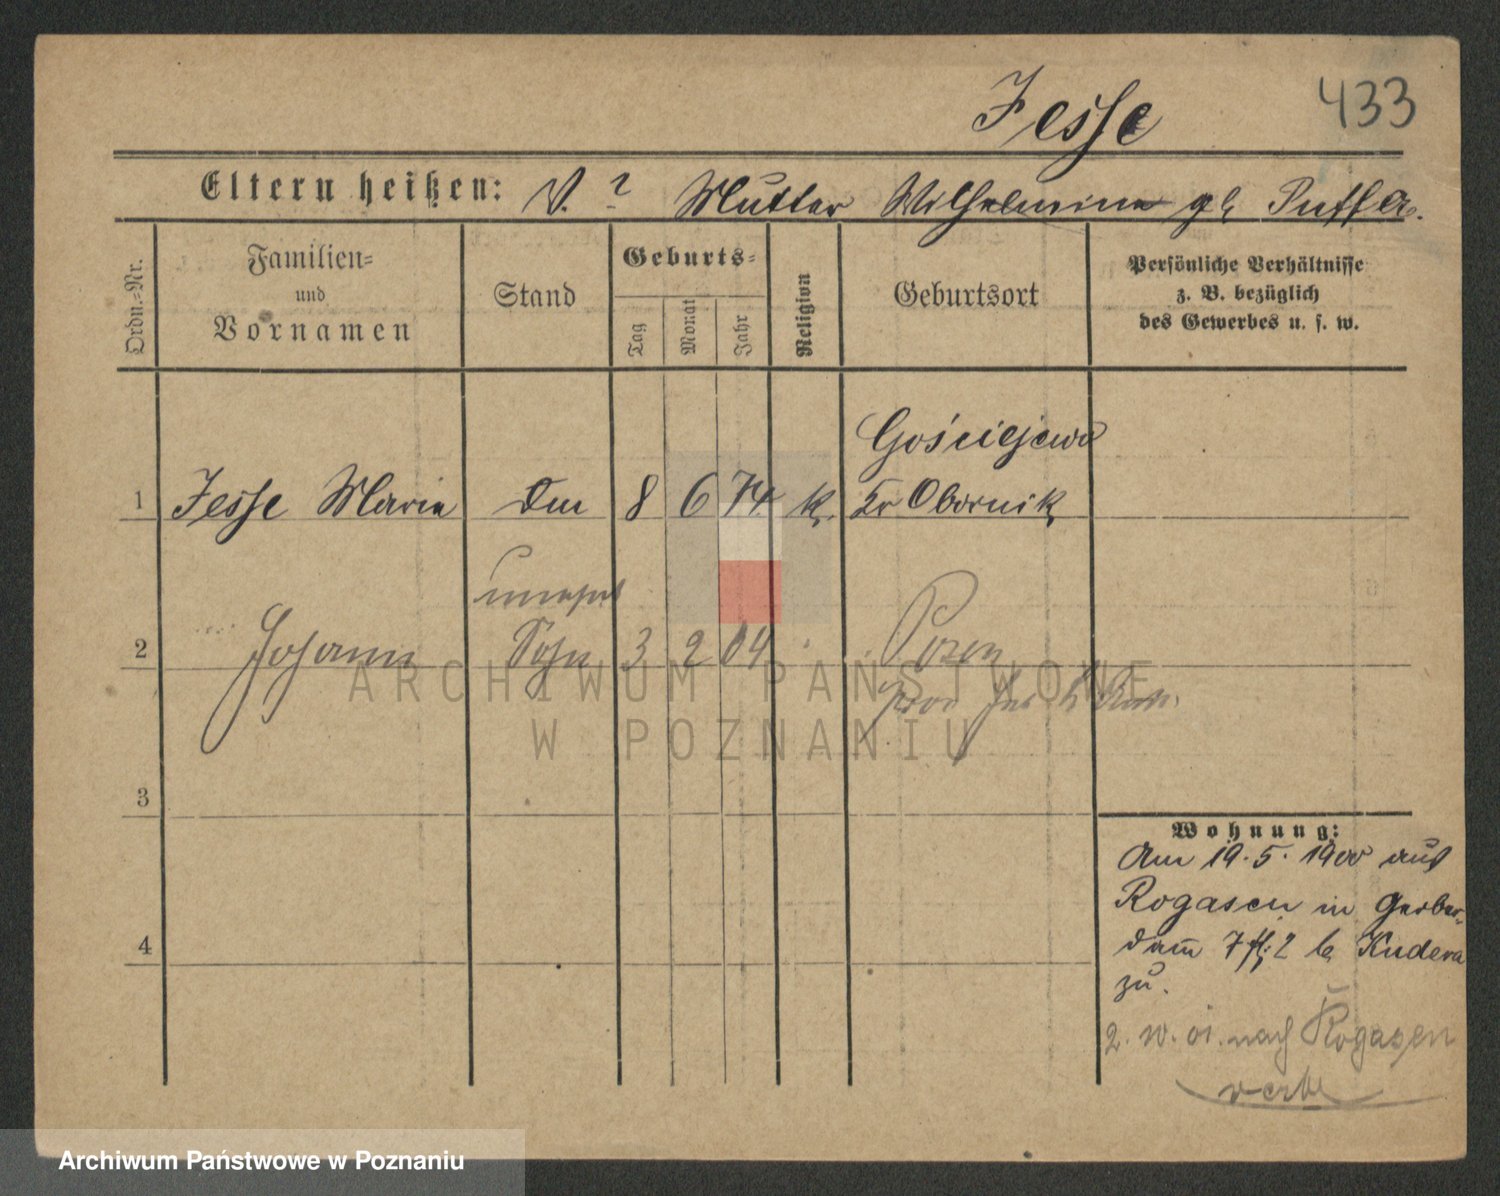 Jesse 433
Eltern heißen: V. ? Mutter Wilhelmine gb
Ordn.=Nr.
Familien=
und
Vornamen
Stand
Geburts=
Tag Monat Jahr
Religion
Geburtsort
Persönliche Verhältnisse
z. B. bezüglich
des Gewerbes u. s. w.
Gościejewo
1 Jesse Maria 8 6 74 k. Kr Obornik
unehel
2 Johann Sohn 3 2 04 Posen
3
4
Wohnung:
Am 19. 5. 1900 aus
Rogasen in Gerber-
dam 7 b Kudera
zu.
nach Rogasen
ARCHIWUM PAŃSTWOWE
W POZNANIU
Archiwum Państwowe w Poznaniu